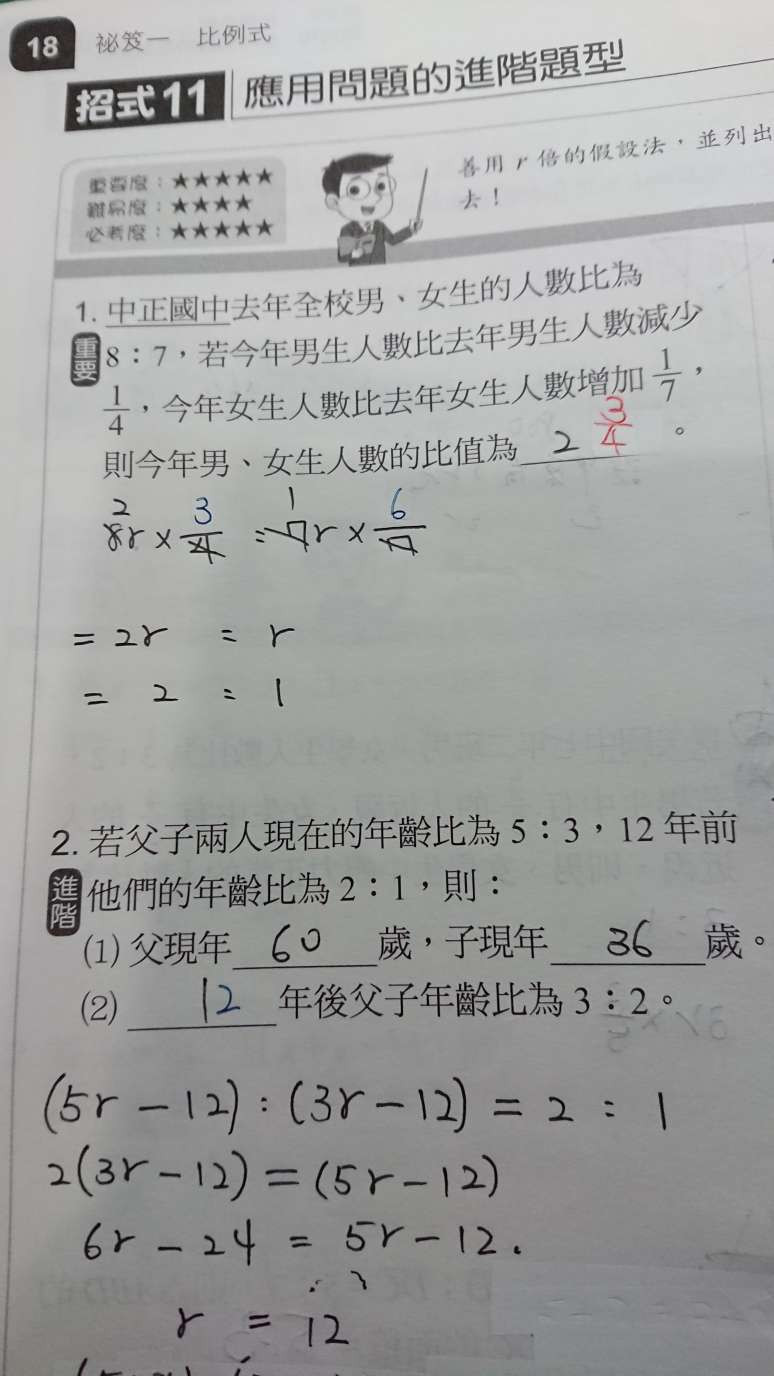 18 祕笈一 比例式
招式11 應用問題的進階題型
重要度：★★★★★
難易度：★★★★
必考度：★★★★★
善用 r 倍的假設法，並列出
去！
1. 中正國中去年全校男、女生的人數比為
重要 8：7，若今年男生人數比去年男生人數減少
1/4，今年女生人數比去年女生人數增加 1/7，
則今年男、女生人數的比值為 2 3/4 。
2 1
8r × 3/4 : 7r × 6/7
= 2r : r
= 2 : 1
2. 若父子兩人現在的年齡比為 5：3，12 年前
進階 他們的年齡比為 2：1，則：
(1) 父現年 60 歲，子現年 36 歲。
(2) 12 年後父子年齡比為 3：2。
(5r - 12) : (3r - 12) = 2 : 1
2(3r - 12) = (5r - 12)
6r - 24 = 5r - 12.
r = 12